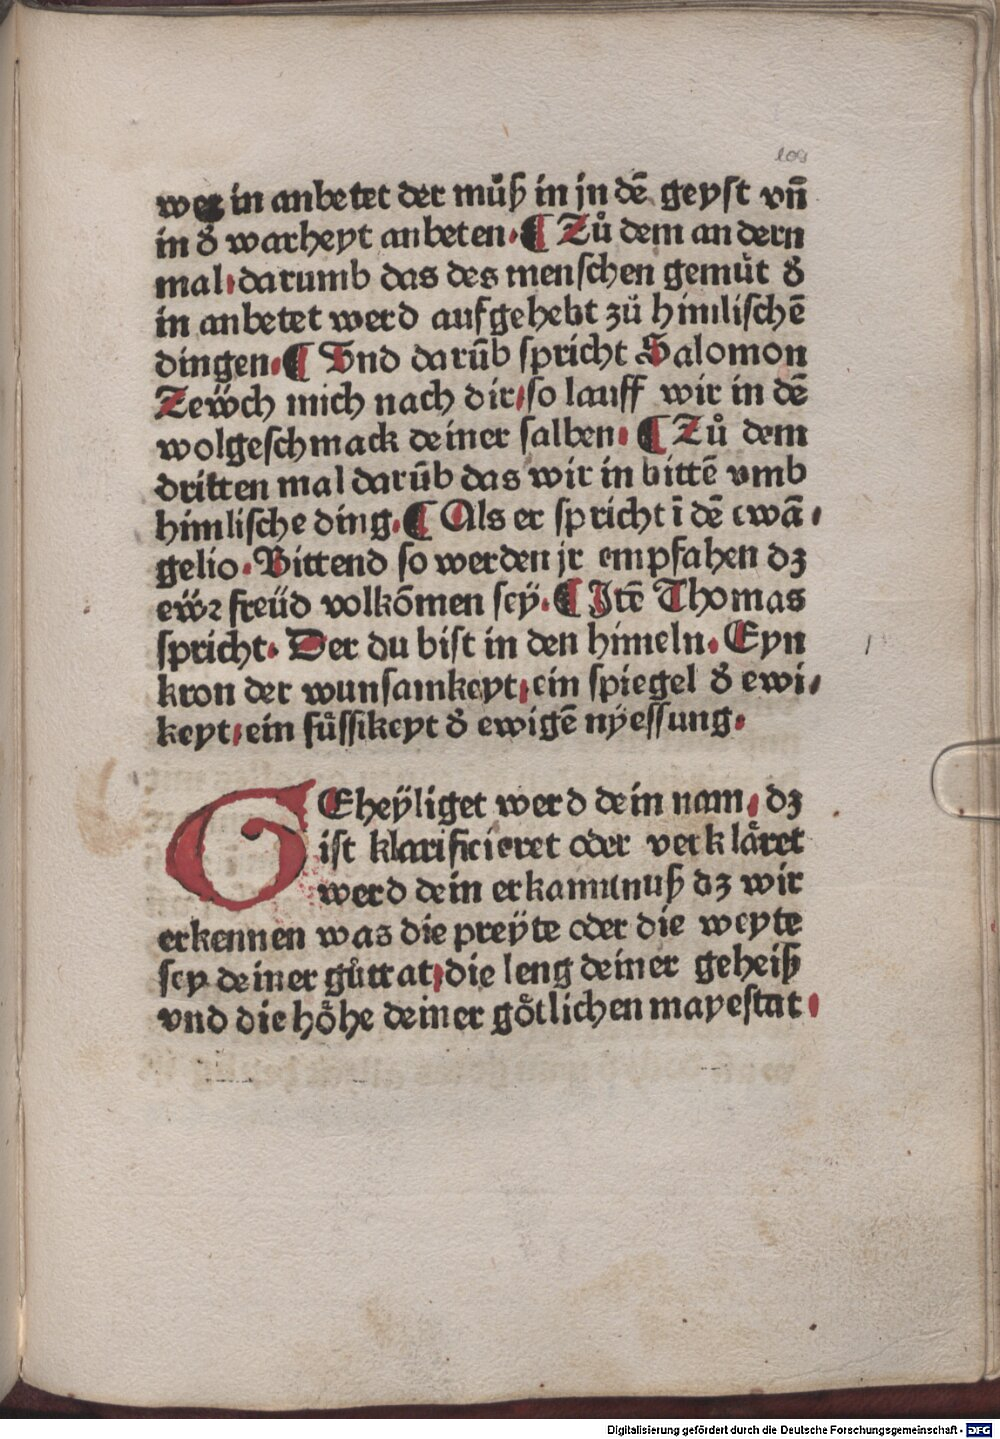 109
wer in anbetet der můß in jn dē geyst vn̄
in d̕ warheyt anbeten. ¶ Zů dem andern
mal, darumb das des menschen gemüt d̕
in anbetet werd aufgehebt zů himlischē
dingen. ¶ Vnd darūb spricht Salomon
Zewch mich nach dir, so lauff wir in dē
wolgeschmack deiner salben. ¶ Zů dem
dritten mal darūb das wir in bittē vmb
himlische ding. ¶ Als er spricht ī dē ewā,
gelio. Bittend so werden jr empfahen dz
eẅꝛ freüd volkōmen seÿ. ¶ Itē Thomas
spricht. Der du bist in den himeln. Eyn
kron der wunsamkeyt, ein spiegel d̕ ewi,
keyt, ein sůssikeyt d̕ ewigē nÿessung.
GEheÿliget werd dein nam, dz
ist klarificieret oder verkläret
werd dein erkantnuß dz wir
erkennen was die preÿte oder die weyte
sey deiner gůttat, die leng deiner geheiß
vnd die höhe deiner götlichen mayestat,
Digitalisierung gefördert durch die Deutsche Forschungsgemeinschaft - DFG